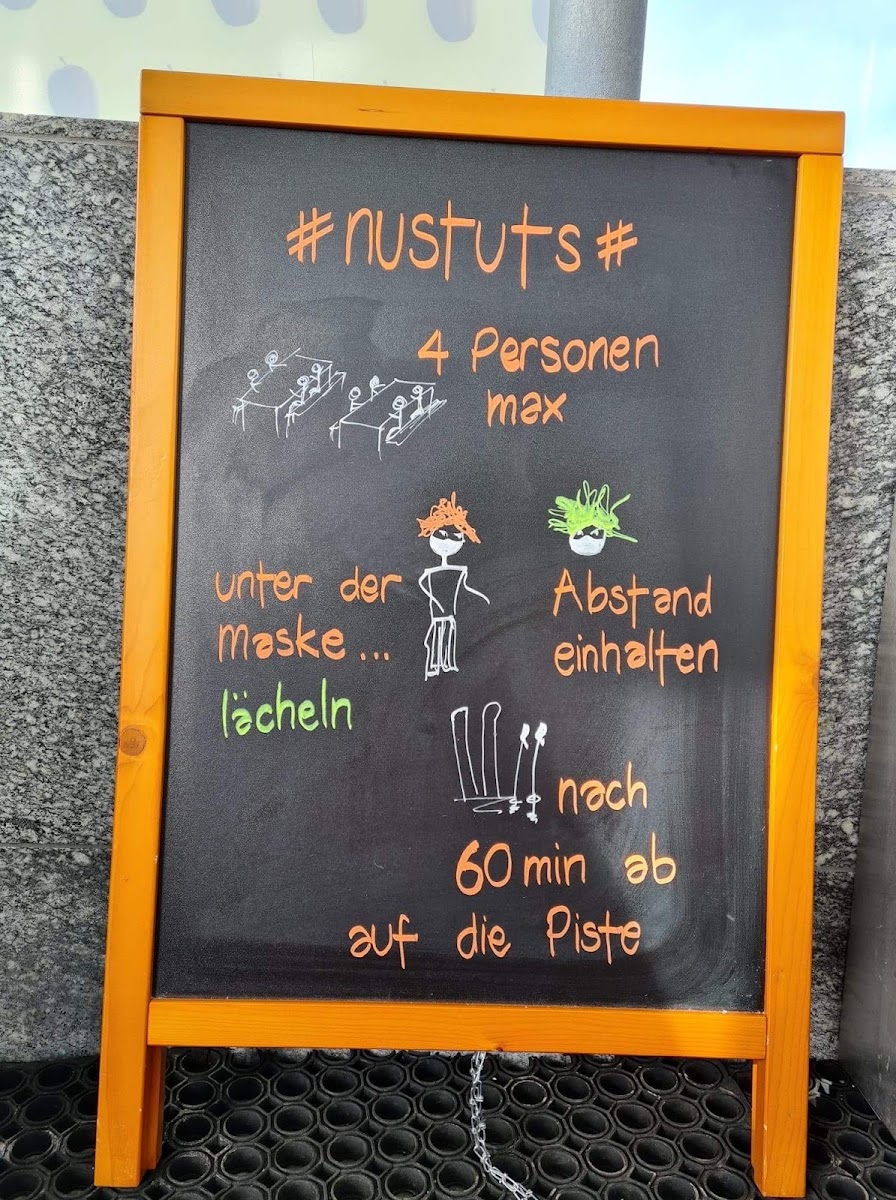 #nustuts#
4 Personen
max
unter der
maske...
lächeln
Abstand
einhalten
nach
60 min ab
auf die Piste